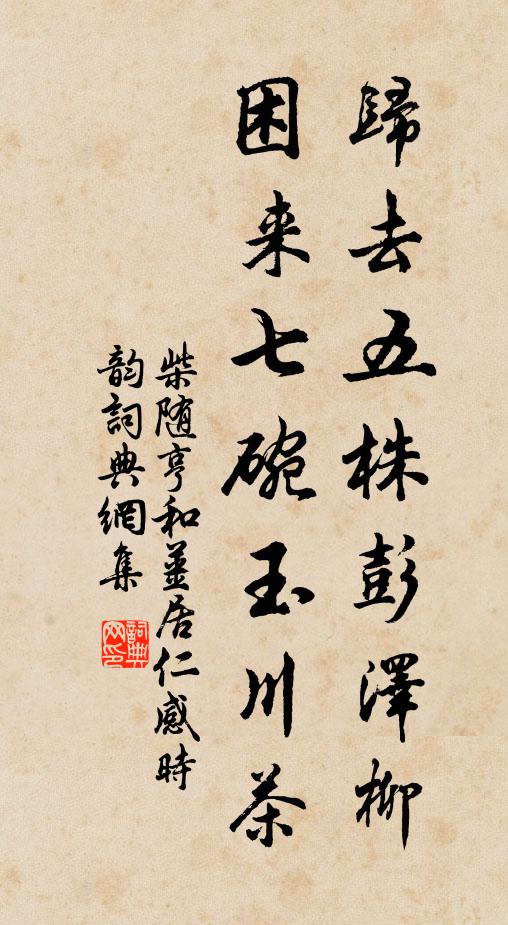 歸去五株彭澤柳
困来七碗玉川茶
柴随亨和薑居仁感時
韵詞典網集
詞典網印